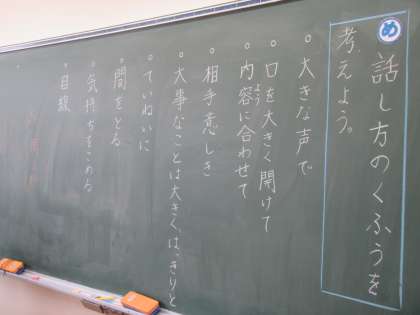 め
話し方のくふうを
考えよう。
○大きな声で
○口を大きく開けて
○内容に合わせて
よう
○相手意しき
○大事なことは大きく、はっきりと
○ていねいに
○間をとる
○気持ちをこめる
○目線